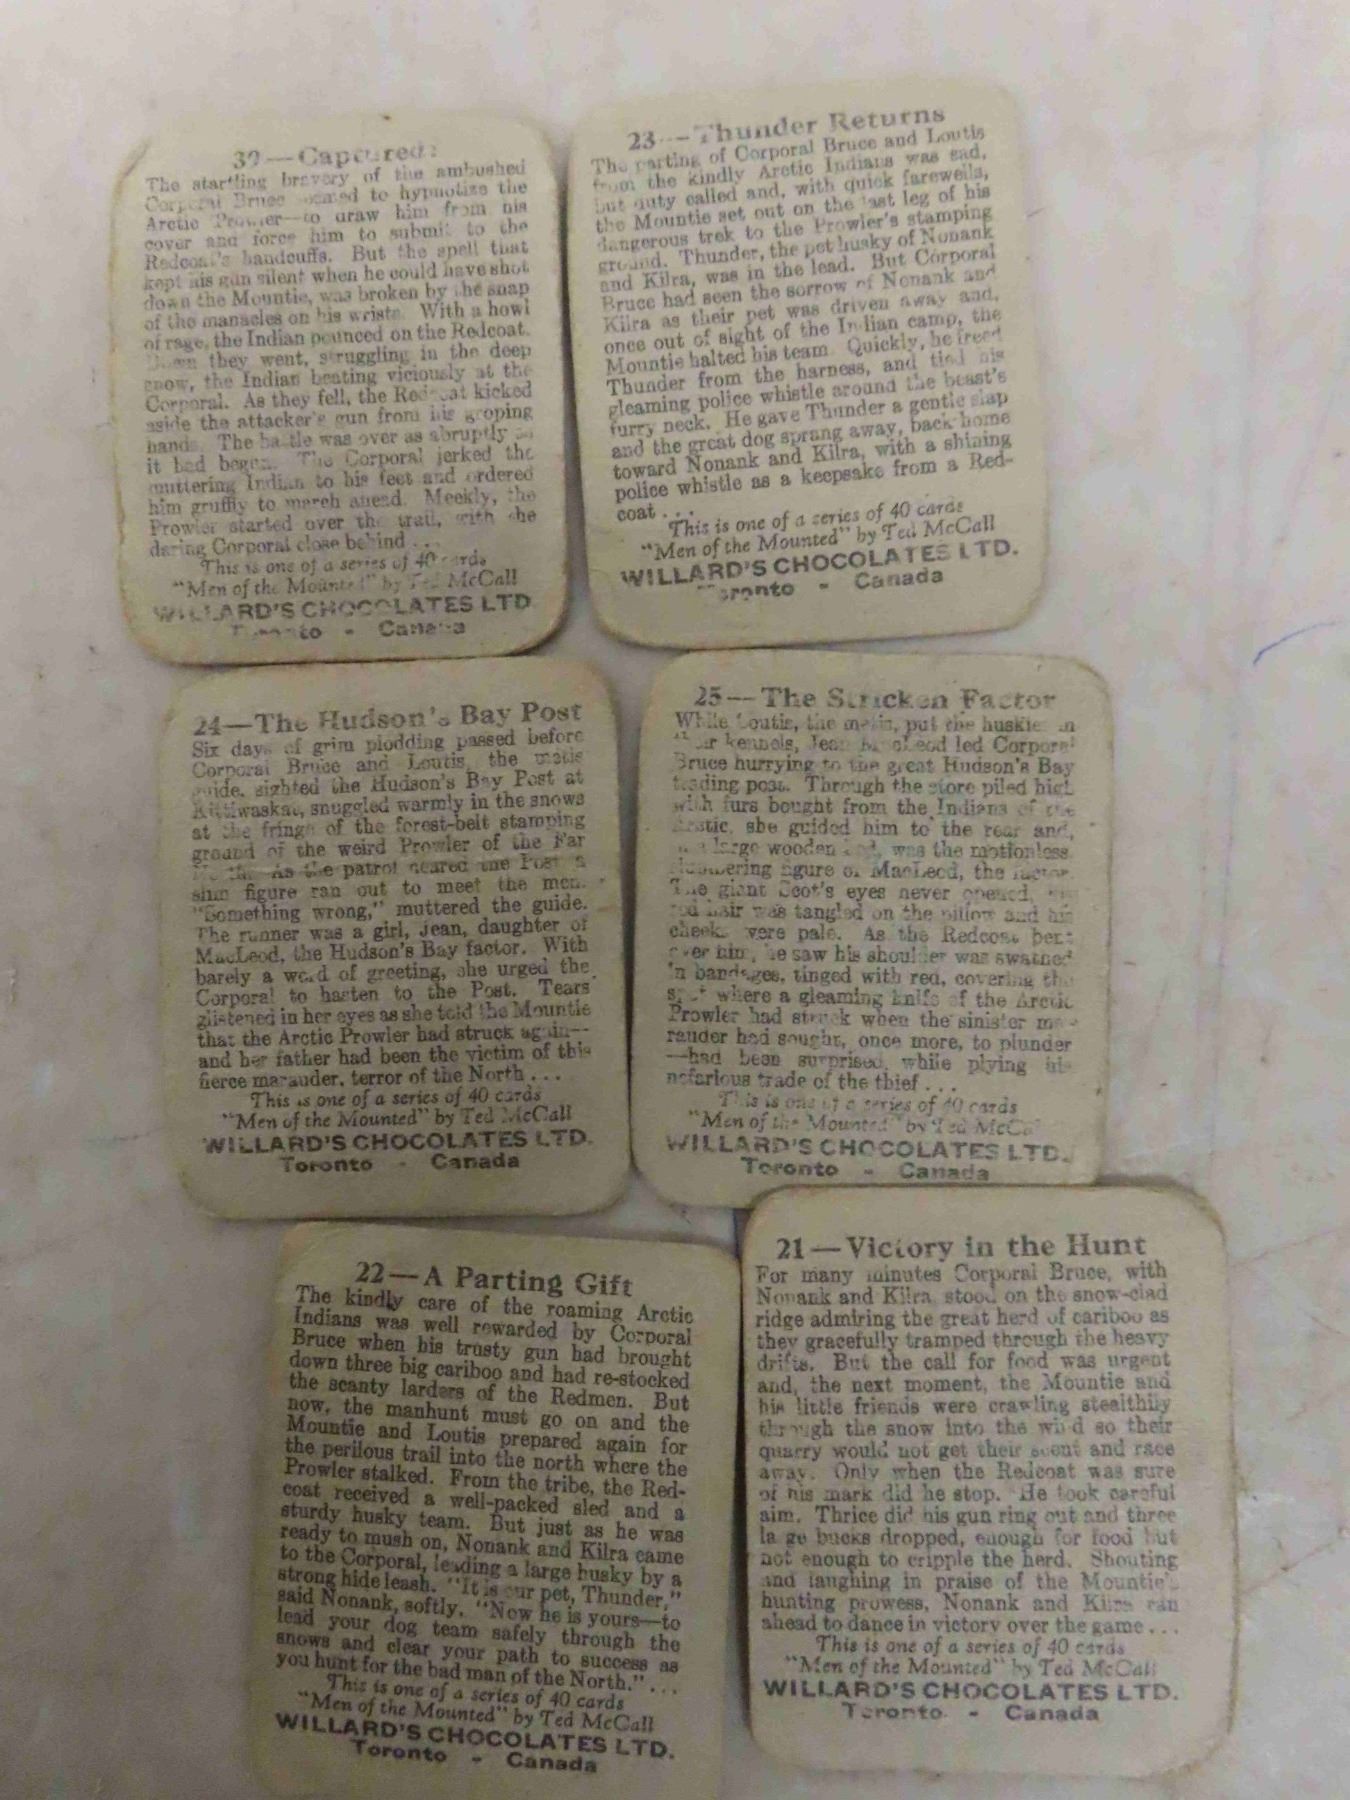 —Captured
The startling bravery of the ambushed
Corporal Bruce seemed to hypnotize the
Arctic Prowler—to draw him from his
cover and force him to submit to the
Redcoat's handcuffs. But the spell that
kept his gun silent when he could have shot
down the Mountie, was broken by the snap
of the manacles on his wrists. With a howl
of rage, the Indian pounced on the Redcoat.
Down they went, struggling in the deep
snow, the Indian beating viciously at the
Corporal. As they fell, the Redcoat kicked
aside the attacker's gun from his groping
hands. The battle was over as abruptly as
it had begun. The Corporal jerked the
muttering Indian to his feet and ordered
him gruffly to march ahead. Meekly, the
Prowler started over the trail, with the
daring Corporal close behind . . .
This is one of a series of 40 cards
"Men of the Mounted" by Ted McCall
WILLARD'S CHOCOLATES LTD.
Toronto - Canada
23—Thunder Returns
The parting of Corporal Bruce and Loutis
from the kindly Arctic Indians was sad,
but duty called and, with quick farewells,
the Mountie set out on the last leg of his
dangerous trek to the Prowler's stamping
ground. Thunder, the pet husky of Nonank
and Kilra, was in the lead. But Corporal
Bruce had seen the sorrow of Nonank and
Kilra as their pet was driven away and,
once out of sight of the Indian camp, the
Mountie halted his team. Quickly, he freed
Thunder from the harness, and tied his
gleaming police whistle around the beast's
furry neck. He gave Thunder a gentle slap
and the great dog sprang away, back home
toward Nonank and Kilra, with a shining
police whistle as a keepsake from a Red-
coat . . .
This is one of a series of 40 cards
"Men of the Mounted" by Ted McCall
WILLARD'S CHOCOLATES LTD.
Toronto - Canada
24—The Hudson's Bay Post
Six days of grim plodding passed before
Corporal Bruce and Loutis, the metis
guide, sighted the Hudson's Bay Post at
Kittiwaskat, snuggled warmly in the snows
at the fringe of the forest-belt stamping
ground of the weird Prowler of the Far
North. As the patrol neared the Post a
slim figure ran out to meet the men.
"Something wrong," muttered the guide.
The runner was a girl, Jean, daughter of
MacLeod, the Hudson's Bay factor. With
barely a word of greeting, she urged the
Corporal to hasten to the Post. Tears
glistened in her eyes as she told the Mountie
that the Arctic Prowler had struck again—
and her father had been the victim of this
fierce marauder, terror of the North . . .
This is one of a series of 40 cards
"Men of the Mounted" by Ted McCall
WILLARD'S CHOCOLATES LTD.
Toronto - Canada
25—The Stricken Factor
While Loutis, the metis, put the huskies in
their kennels, Jean MacLeod led Corporal
Bruce hurrying to the great Hudson's Bay
trading post. Through the store piled high
with furs bought from the Indians of the
Arctic, she guided him to the rear and,
in a large wooden bed, was the motionless
slumbering figure of MacLeod, the factor.
The giant Scot's eyes never opened, his
red hair was tangled on the pillow and his
cheeks were pale. As the Redcoat bent
over him, he saw his shoulder was swathed
in bandages, tinged with red, covering the
spot where a gleaming knife of the Arctic
Prowler had struck when the sinister ma-
rauder had sought, once more, to plunder
—had been surprised while plying his
nefarious trade of the thief . . .
This is one of a series of 40 cards
"Men of the Mounted" by Ted McCall
WILLARD'S CHOCOLATES LTD.
Toronto - Canada
22—A Parting Gift
The kindly care of the roaming Arctic
Indians was well rewarded by Corporal
Bruce when his trusty gun had brought
down three big cariboo and had re-stocked
the scanty larders of the Redmen. But
now, the manhunt must go on and the
Mountie and Loutis prepared again for
the perilous trail into the north where the
Prowler stalked. From the tribe, the Red-
coat received a well-packed sled and a
sturdy husky team. But just as he was
ready to mush on, Nonank and Kilra came
to the Corporal, leading a large husky by a
strong hide leash. "It is our pet, Thunder,"
said Nonank, softly. "Now he is yours—to
lead your dog team safely through the
snows and clear your path to success as
you hunt for the bad man of the North." . . .
This is one of a series of 40 cards
"Men of the Mounted" by Ted McCall
WILLARD'S CHOCOLATES LTD.
Toronto - Canada
21—Victory in the Hunt
For many minutes Corporal Bruce, with
Nonank and Kilra stood on the snow-clad
ridge admiring the great herd of cariboo as
they gracefully tramped through the heavy
drifts. But the call for food was urgent
and, the next moment, the Mountie and
his little friends were crawling stealthily
through the snow into the wind so their
quarry would not get their scent and race
away. Only when the Redcoat was sure
of his mark did he stop. He took careful
aim. Thrice did his gun ring out and three
large bucks dropped, enough for food but
not enough to cripple the herd. Shouting
and laughing in praise of the Mountie's
hunting prowess, Nonank and Kilra ran
ahead to dance in victory over the game . . .
This is one of a series of 40 cards
"Men of the Mounted" by Ted McCall
WILLARD'S CHOCOLATES LTD.
Toronto - Canada